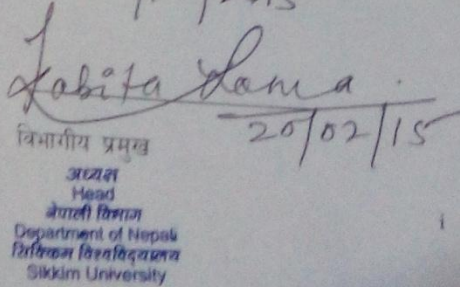 Kabita Lama.
20/02/15
विभागीय प्रमुख
अध्यक्ष
Head
नेपाली विभाग
Department of Nepali
सिक्किम विश्वविद्यालय
Sikkim University
i